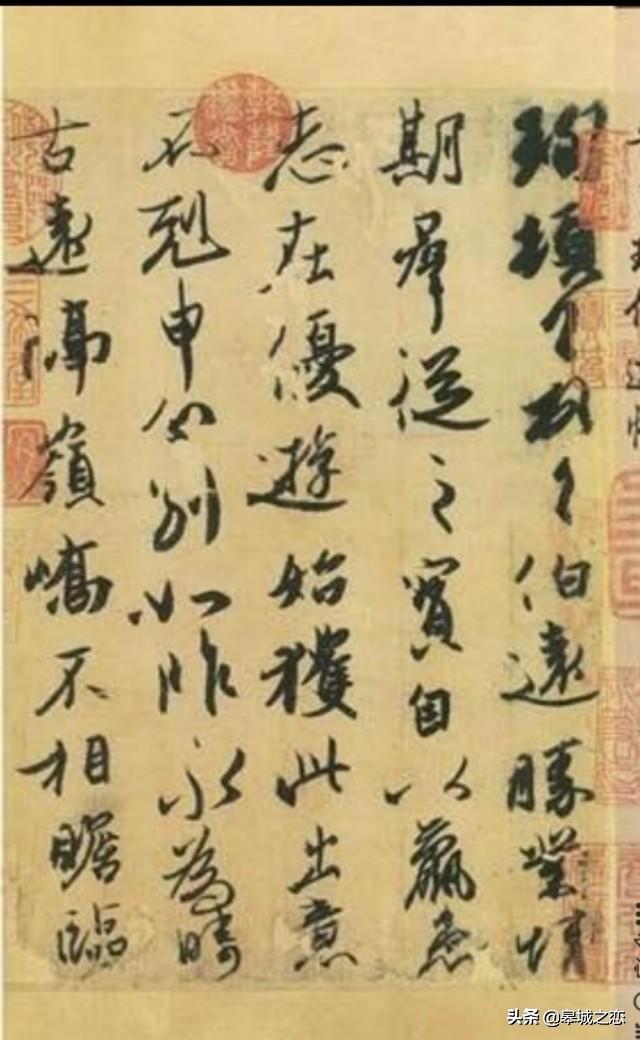 珣頓首頓首伯遠勝業情
期群從之寶自以羸患
志在優遊始獲此出意
不剋申分別如昨永為疇
古遠隔嶺嶠不相瞻臨
头条 @皋城之恋